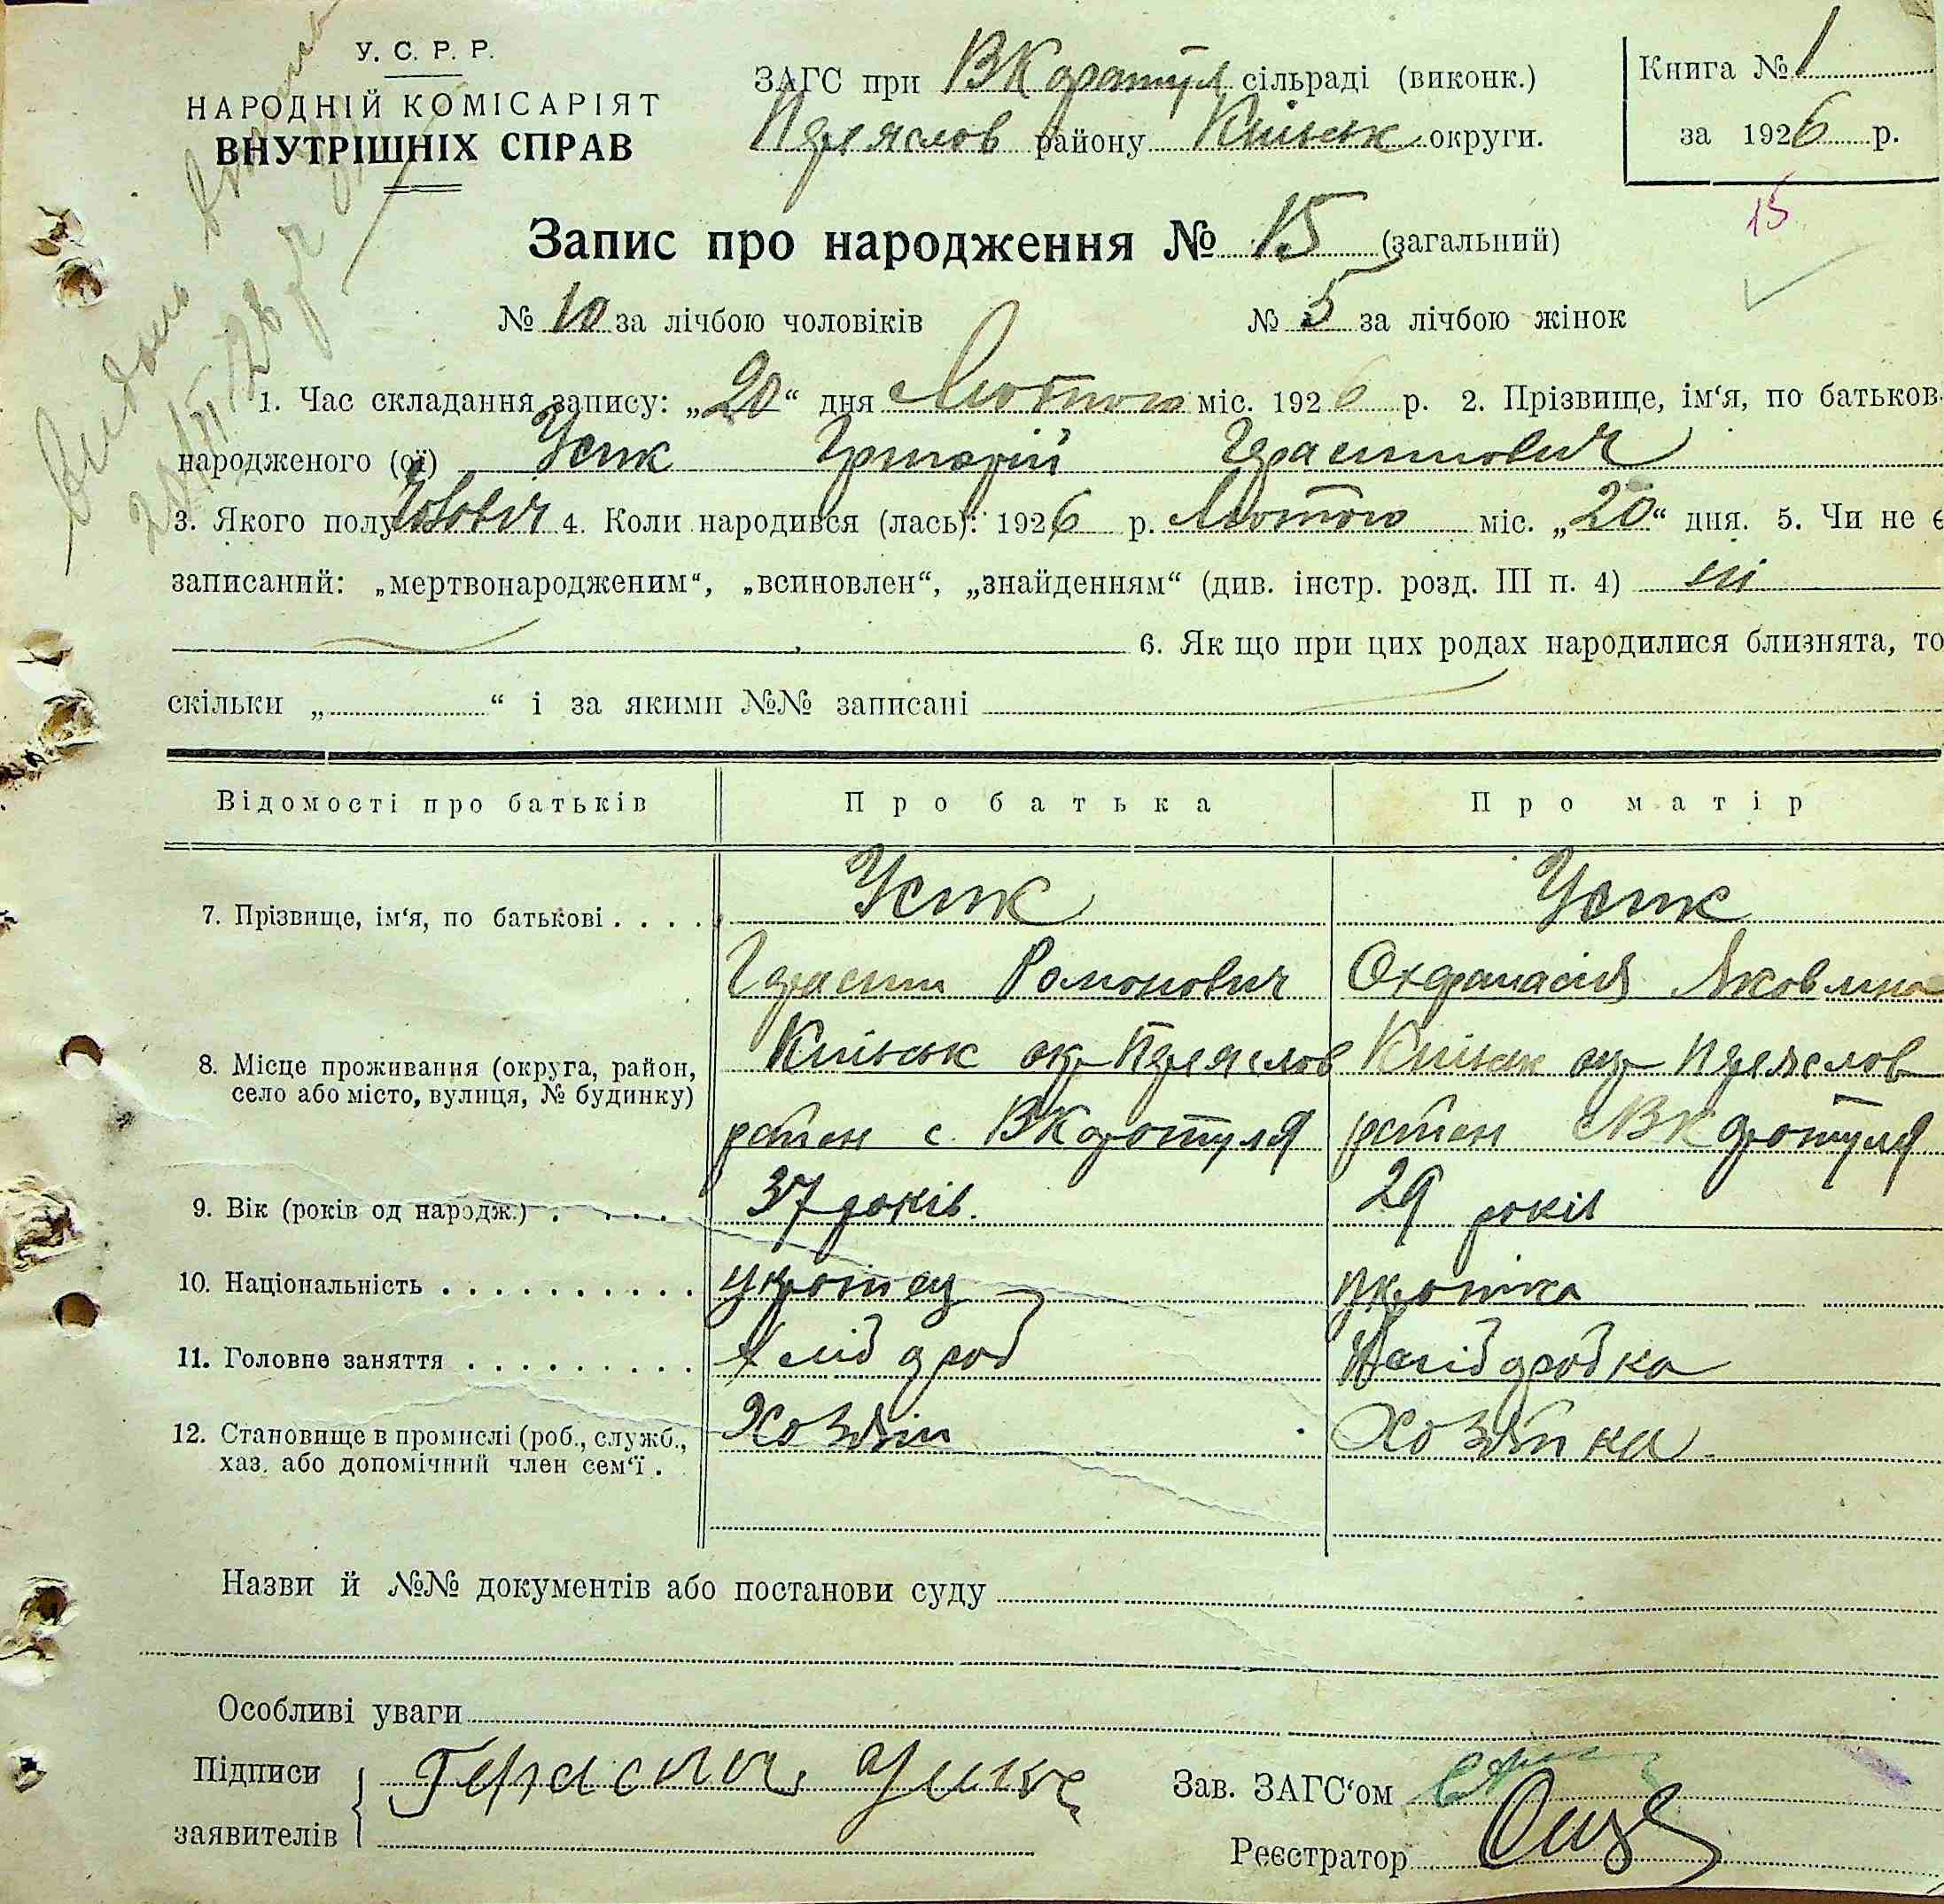 У. С. Р. Р.
НАРОДНІЙ КОМІСАРІЯТ
ВНУТРІШНІХ СПРАВ
ЗАГС при ВКаратул сільраді (виконк.)
Переяслов району Київськ округи.
Книга № 1
за 1926 р.
15
Запис про народження № 15 (загальний)
№ 10 за лічбою чоловіків № 5 за лічбою жінок
1. Час складання запису: „20“ дня Лютого міс. 1926 р. 2. Прізвище, ім‘я, по батьков
народженого (ої) Усик Григорій Герасимович
3. Якого полу Чолович 4. Коли народився (лась): 1926 р. Лютого міс. „20“ дня. 5. Чи не є
записаний: „мертвонародженим“, „всиновлен“, „знайденням“ (див. інстр. розд. III п. 4) ні
6. Як що при цих родах народилися близнята, то
скільки „ “ і за якими №№ записані
Відомості про батьків Про батька Про матір
7. Прізвище, ім‘я, по батькові . . . . Усик Усик
Герасим Романович Яковлина
8. Місце проживання (округа, район, Київськ окр Переяслов Київськ окр Переяслов
село або місто, вулиця, № будинку)
район с. ВКаратуля район с ВКаратуля
9. Вік (років од народж.) . . . . . 37 років. 29 років
10. Національність . . . . . . . . . . украінец украінка
11. Головне заняття . . . . . . . . . . Хлібороб Хліборобка
12. Становище в промислі (роб., служб., Хозяін Хозяйка
хаз. або допомічний член сем‘ї .
Назви й №№ документів або постанови суду
Особливі уваги
Підписи
заявителів
Герасим Усик
Зав. ЗАГС‘ом
Реєстратор